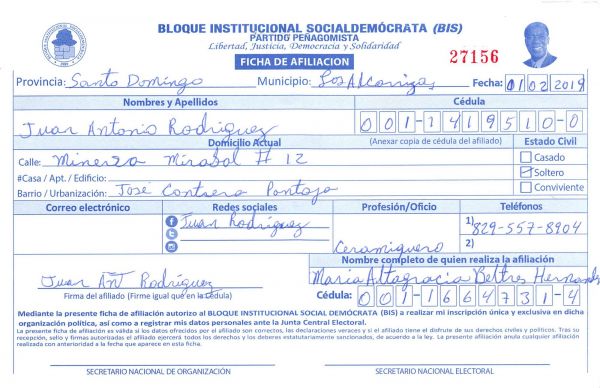 BLOQUE INSTITUCIONAL SOCIALDEMÓCRATA (BIS)
PARTIDO PEÑAGOMISTA
Libertad, Justicia, Democracia y Solidaridad
FICHA DE AFILIACION
27156
Provincia: Santo Domingo Municipio: Los Alcarrizas Fecha: 01 02 2019
Nombres y Apellidos Cédula
Juan Antonio Rodriguez 001-1419510-0
Domicilio Actual (Anexar copia de cédula del afiliado) Estado Civil
Calle: Minerza Mirabal # 12 Casado
#Casa / Apt. / Edificio: Soltero
Barrio / Urbanización: José Contrera Pantoja Conviviente
Correo electrónico Redes sociales Profesión/Oficio Teléfonos
Juan Rodríguez 1) 829-557-8904
Ceramiquero 2)
Nombre completo de quien realiza la afiliación
Juan Ant Rodríguez Maria Altagracia Beltres Hernandez
Firma del afiliado (Firme igual que en la cédula) Cédula: 001-1664731-4
Mediante la presente ficha de afiliación autorizo al BLOQUE INSTITUCIONAL SOCIAL DEMÓCRATA (BIS) a realizar mi inscripción única y exclusiva en dicha
organización política, así como a registrar mis datos personales ante la Junta Central Electoral.
La presente ficha de afiliación es válida si los datos ofrecidos por el afiliado son correctos, las declaraciones veraces y si el afiliado tiene el disfrute de sus derechos civiles y políticos. Tras su
recepción, sello y firmas autorizadas el afiliado ejercerá todos los derechos y los deberes estatutariamente sancionados, de acuerdo a la ley. La presente afiliación anula cualquier afiliación
realizada con anterioridad a la fecha que aparece en esta ficha.
SECRETARIO NACIONAL DE ORGANIZACIÓN SECRETARIO NACIONAL ELECTORAL